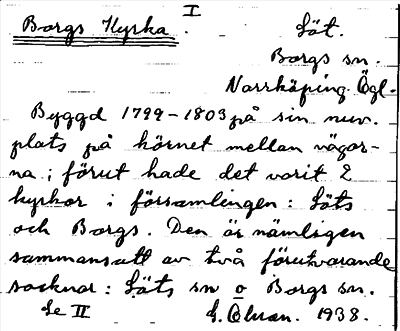 I
Borgs Kyrka. Löt.
Borgs sn.
Norrköping. Ögl.
Byggd 1799-1803 på sin nuv.
plats på hörnet mellan vägar-
na; förut hade det varit 2
kyrkor i församlingen: Löts
och Borgs. Den är nämligen
sammansatt av två förutvarande
socknar: Löts sn o Borgs sn.
Se II G. Ölman. 1938.